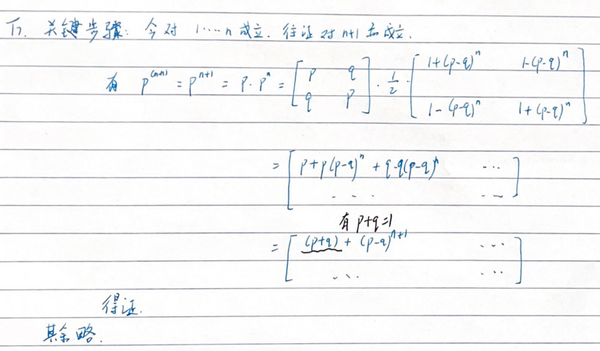 下. 关键步骤: 今对 1……n 成立. 往证对 n+1 亦成立.
有 p^(n+1) = p^{n+1} = p · p^n = [p q; q p] · 1/2 · [1+(p-q)^n 1-(p-q)^n; 1-(p-q)^n 1+(p-q)^n]
= [p+p(p-q)^n + q-q(p-q)^n …; … …]
有 p+q=1
= [(p+q) + (p-q)^{n+1} …; … …]
得证.
其余略.